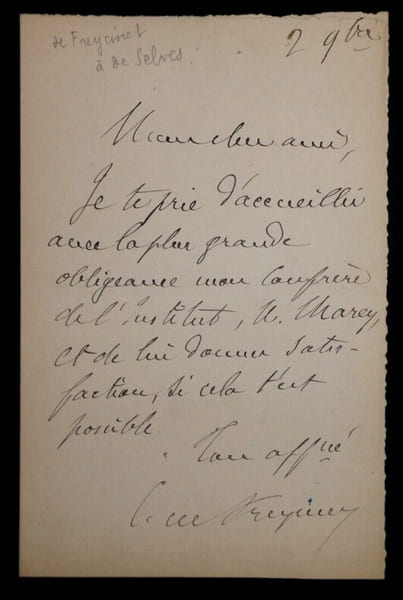 de Freycinet
à de Selves.
2 9bre
Mon cher ami,
Je te prie d'accueillir
avec la plus grande
obligeance mon confrère
de l'Institut, M. Marey,
et de lui donner satis-
faction, si cela t'est
possible.
Ton affné
C. de Freycinet